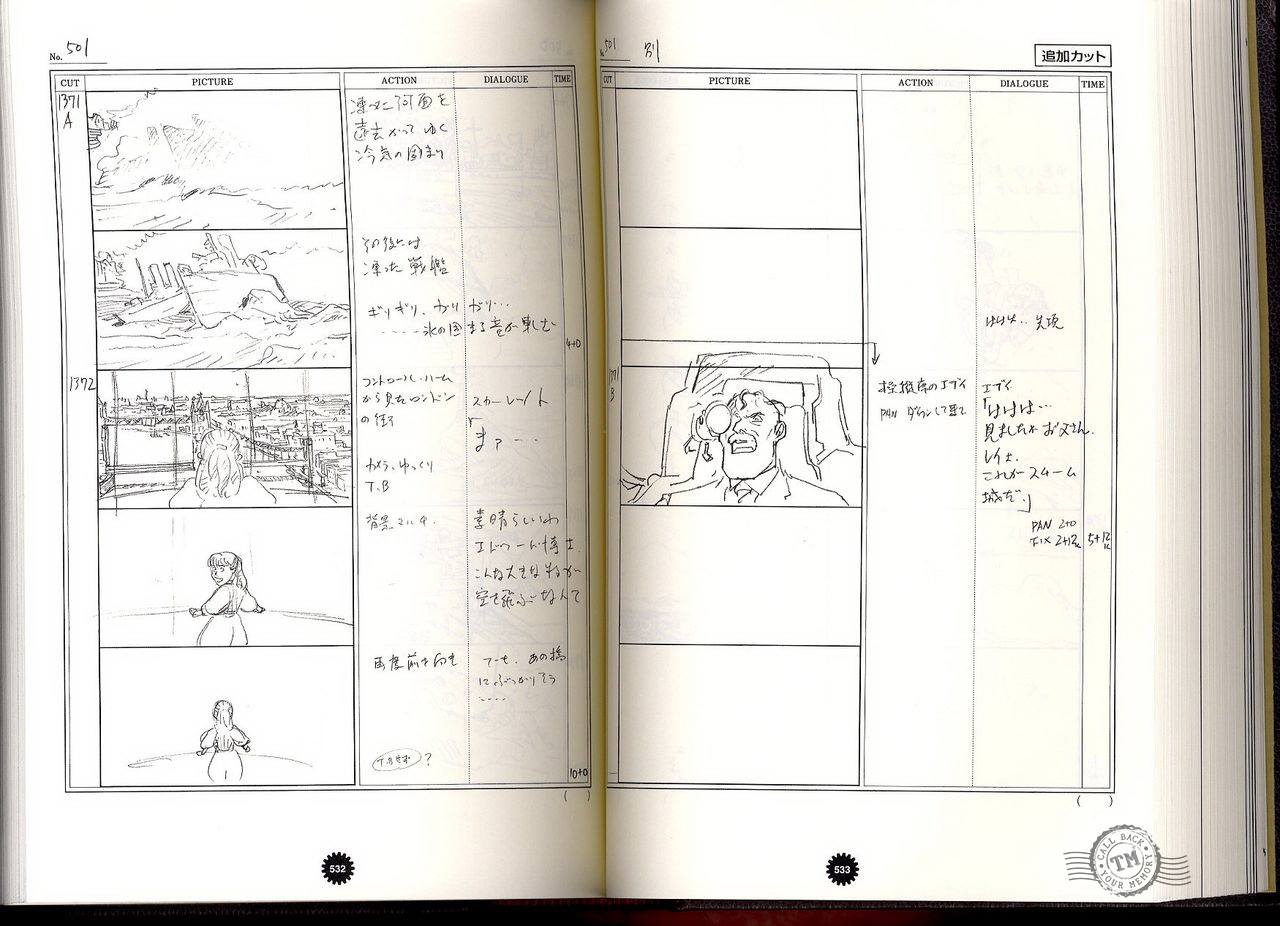 No. 501
CUT PICTURE ACTION DIALOGUE TIME
1371
A
凍った河面を
遠去かってゆく
冷気の固まり
その後には
凍った戦艦
ギリギリ、ガリガリ…
……氷の固まる音が軋む
4+0
1372
コントロール・ルーム
から見たロンドン
の街
カメラ、ゆっくり
T.B
スカーレット
「まァ…
背景
素晴らしいわ
エドワード博士
こんな大きなものが
空を飛ぶなんて
再度前を向き
でも、あの橋
にぶつかりそう
‥‥
T.B せず ?
10+0
( )
532
501 別
追加カット
CUT PICTURE ACTION DIALOGUE TIME
ははは…先頭
1371
B
操縦席のエディ
PAN ダウンして
エディ
「ははは…
見ましたかお父さん、
レイも、
これがスチーム
城だ」
PAN 2+0
FIX 2+12
5+12
( )
533
CALL BACK
TM
YOUR MEMORY